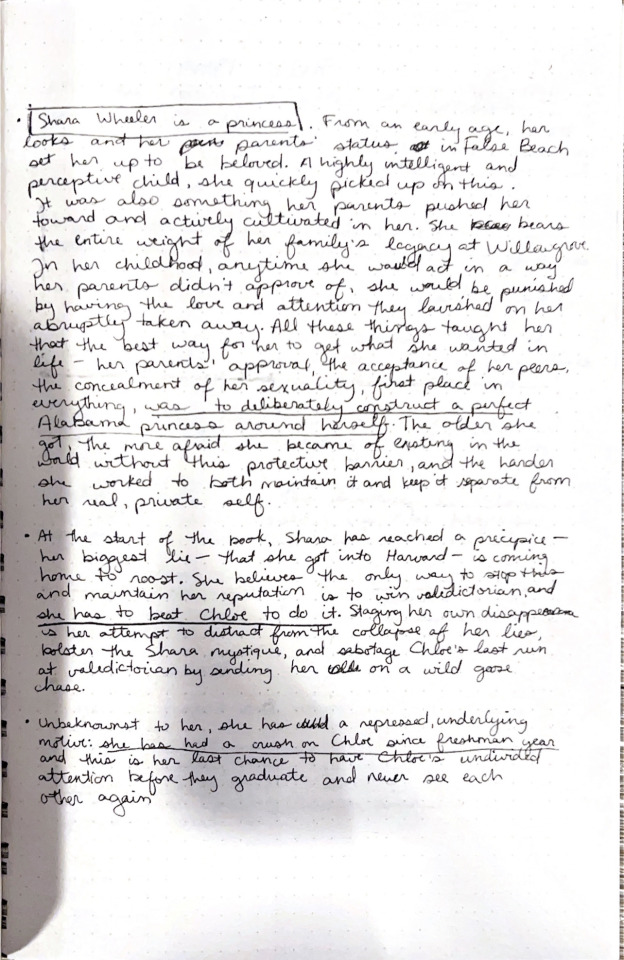 • Shara Wheeler is a princess. From an early age, her
looks and her parents' status in False Beach
set her up to be beloved. A highly intelligent and
perceptive child, she quickly picked up on this.
It was also something her parents pushed her
toward and actively cultivated in her. She bears
the entire weight of her family's legacy at Willowgrove.
In her childhood, anytime she would act in a way
her parents didn't approve of, she would be punished
by having the love and attention they lavished on her
abruptly taken away. All these things taught her
that the best way for her to get what she wanted in
life – her parents' approval, the acceptance of her peers,
the concealment of her sexuality, first place in
everything, was to deliberately construct a perfect
Alabama princess around herself. The older she
got, the more afraid she became of existing in the
world without this protective barrier, and the harder
she worked to both maintain it and keep it separate from
her real, private self.
• At the start of the book, Shara has reached a precipice –
her biggest lie – that she got into Harvard – is coming
home to roost. She believes the only way to stop this
and maintain her reputation is to win valedictorian, and
she has to beat Chloe to do it. Staging her own disappearance
is her attempt to distract from the collapse of her lies,
bolster the Shara mystique, and sabotage Chloe's last run
at valedictorian by sending her on a wild goose
chase.
• Unbeknownst to her, she has a repressed, underlying
motive: she has had a crush on Chloe since freshman year
and this is her last chance to have Chloe's undivided
attention before they graduate and never see each
other again